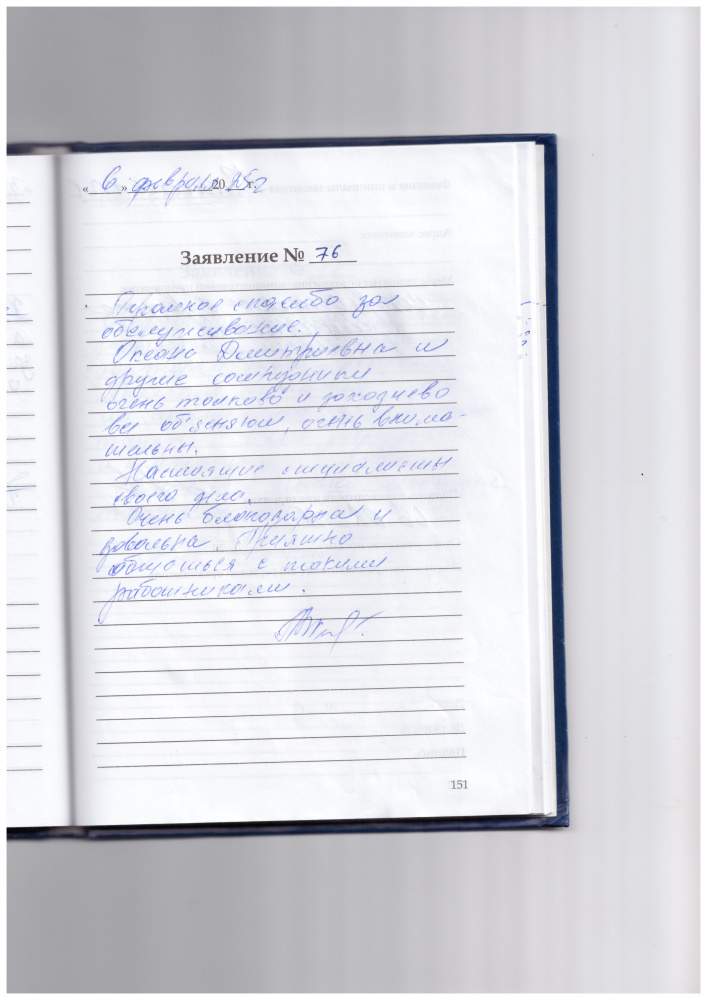 « 6 » февраля 2025 г.
Заявление № 76
Огромное спасибо за
обслуживание.
Оксана Дмитриевна и
другие сотрудники
очень толково и доходчево
все объясняют, очень внима-
тельны.
Настоящие специалисты
своего дела.
Очень благодарна и
довольна. Приятно
общаться с такими
работниками.
151